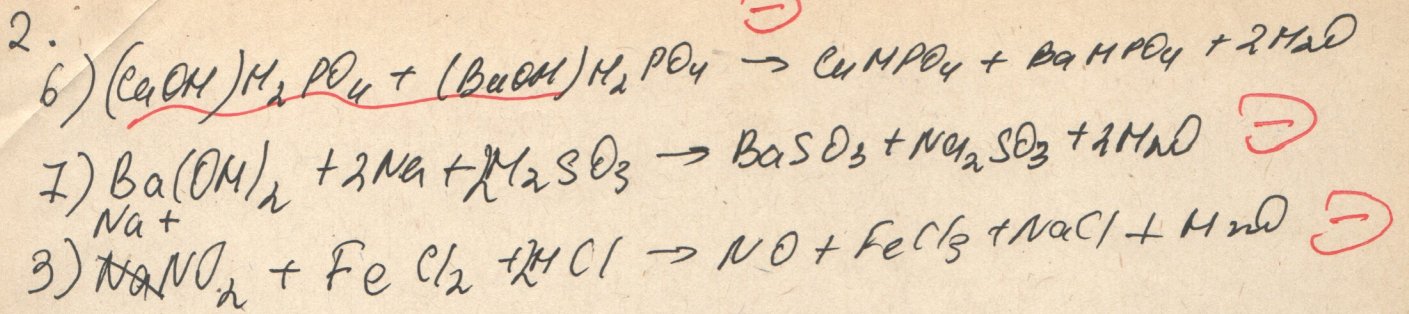 2.
6) (CaOH)H₂PO₄ + (BaOH)H₂PO₄ → CaHPO₄ + BaHPO₄ + 2H₂O
7) Ba(OH)₂ + 2Na + 2H₂SO₃ → BaSO₃ + Na₂SO₃ + 2H₂O
Na +
3) NO₂ + FeCl₂ + 2HCl → NO + FeCl₃ + NaCl + H₂O